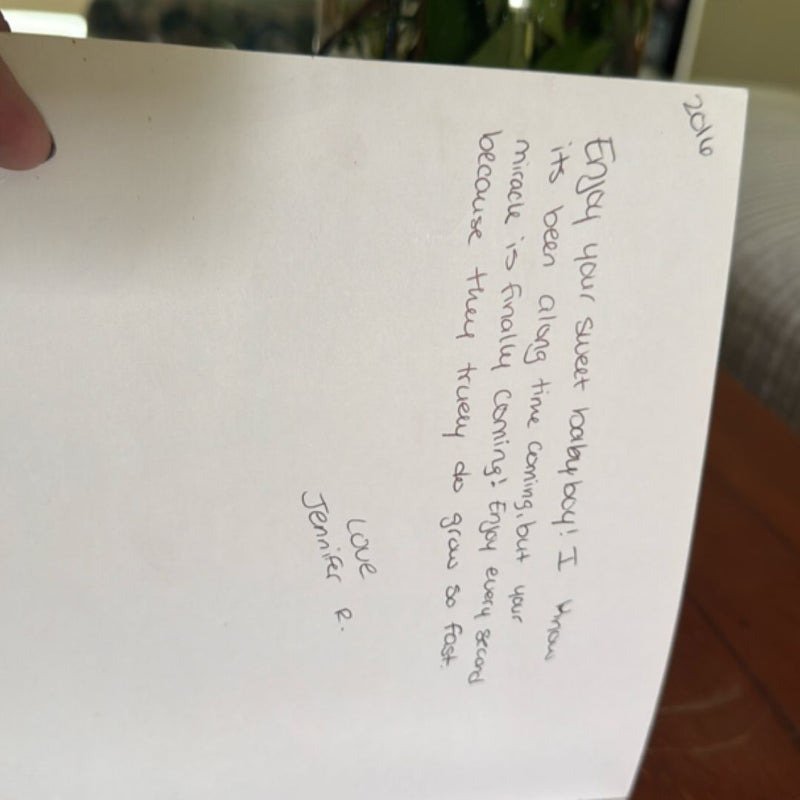 2016
Enjoy your sweet babyboy! I know
its been along time coming, but your
miracle is finally coming! Enjoy every second
because they truely do grow so fast.
Love
Jennifer R.